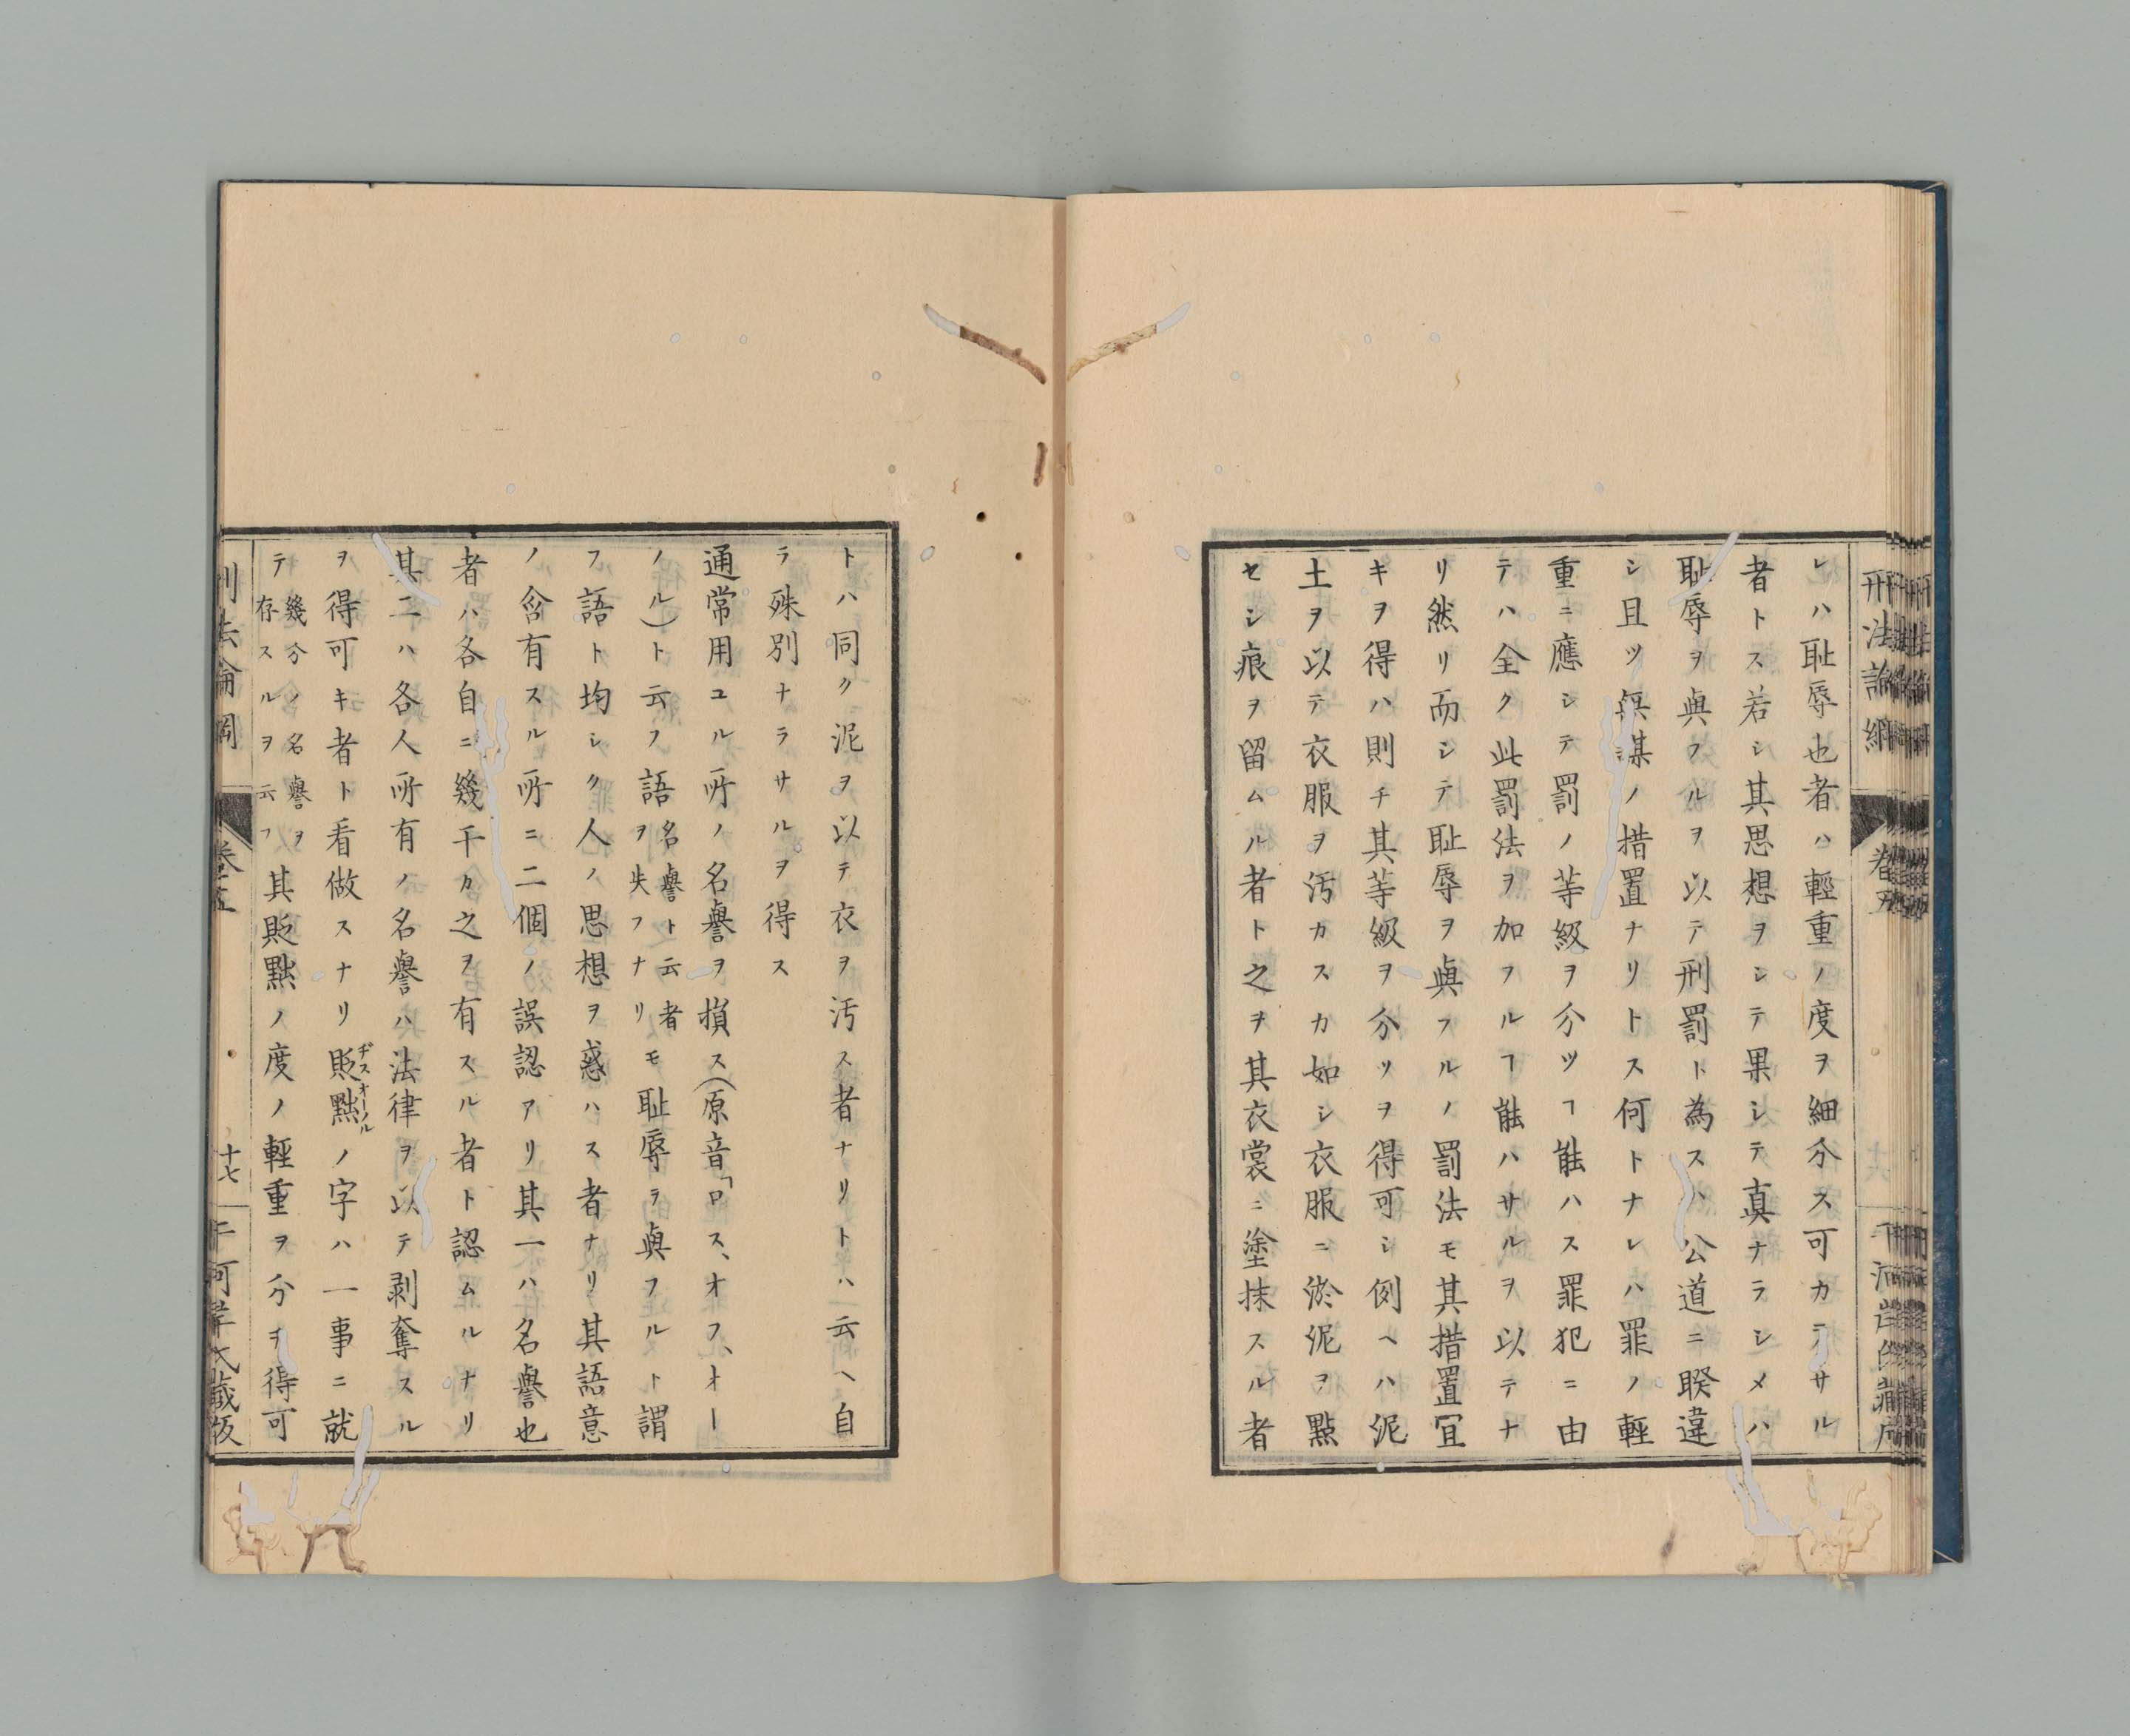 刑法論綱
卷五
レハ耻辱也者ハ輕重ノ度ヲ細分ス可カラサル
者トス若シ其思想ヲシテ果シテ真ナラシメハ
耻辱ヲ與フルヲ以テ刑罰ト為スハ公道ニ睽違
シ且ツ無謀ノ措置ナリトス何トナレハ罪ノ輕
重ニ應シテ罰ノ等級ヲ分ツヿ能ハス罪犯ニ由
テハ全ク此罰法ヲ加フルヿ能ハサルヲ以テナ
リ然リ而シテ耻辱ヲ與フルノ罰法モ其措置冝
キヲ得ハ則チ其等級ヲ分ツヲ得可シ例ヘハ泥
土ヲ以テ衣服ヲ汚カスカ如シ衣服ニ淤泥ヲ點
セシ痕ヲ留ムル者ト之ヲ其衣裳ニ塗抹スル者
トハ同ク泥ヲ以テ衣ヲ汚ス者ナリトハ云ヘ自
ラ殊別ナラサルヲ得ス
通常用ユル所ノ名譽ヲ損ス(原音「ロス、オフ、オー
ノル)ト云フ語名譽ト云者ヲ失フナリモ耻辱ヲ與フルト謂
フ語ト均シク人ノ思想ヲ惑ハス者ナリ其語意
ノ含有スル所ニ二個ノ誤認アリ其一ハ名譽也
者ハ各自ニ幾干カ之ヲ有スル者ト認ムルナリ
其二ハ各人所有ノ名譽ハ法律ヲ以テ剥奪スル
ヲ得可キ者ト看做スナリ貶黜ヂスオーノルノ字ハ一事ニ就
テ幾分ノ名譽ヲ存スルヲ云フ其貶黜ノ度ノ輕重ヲ分ヲ得可
刑法論綱
卷五
十七